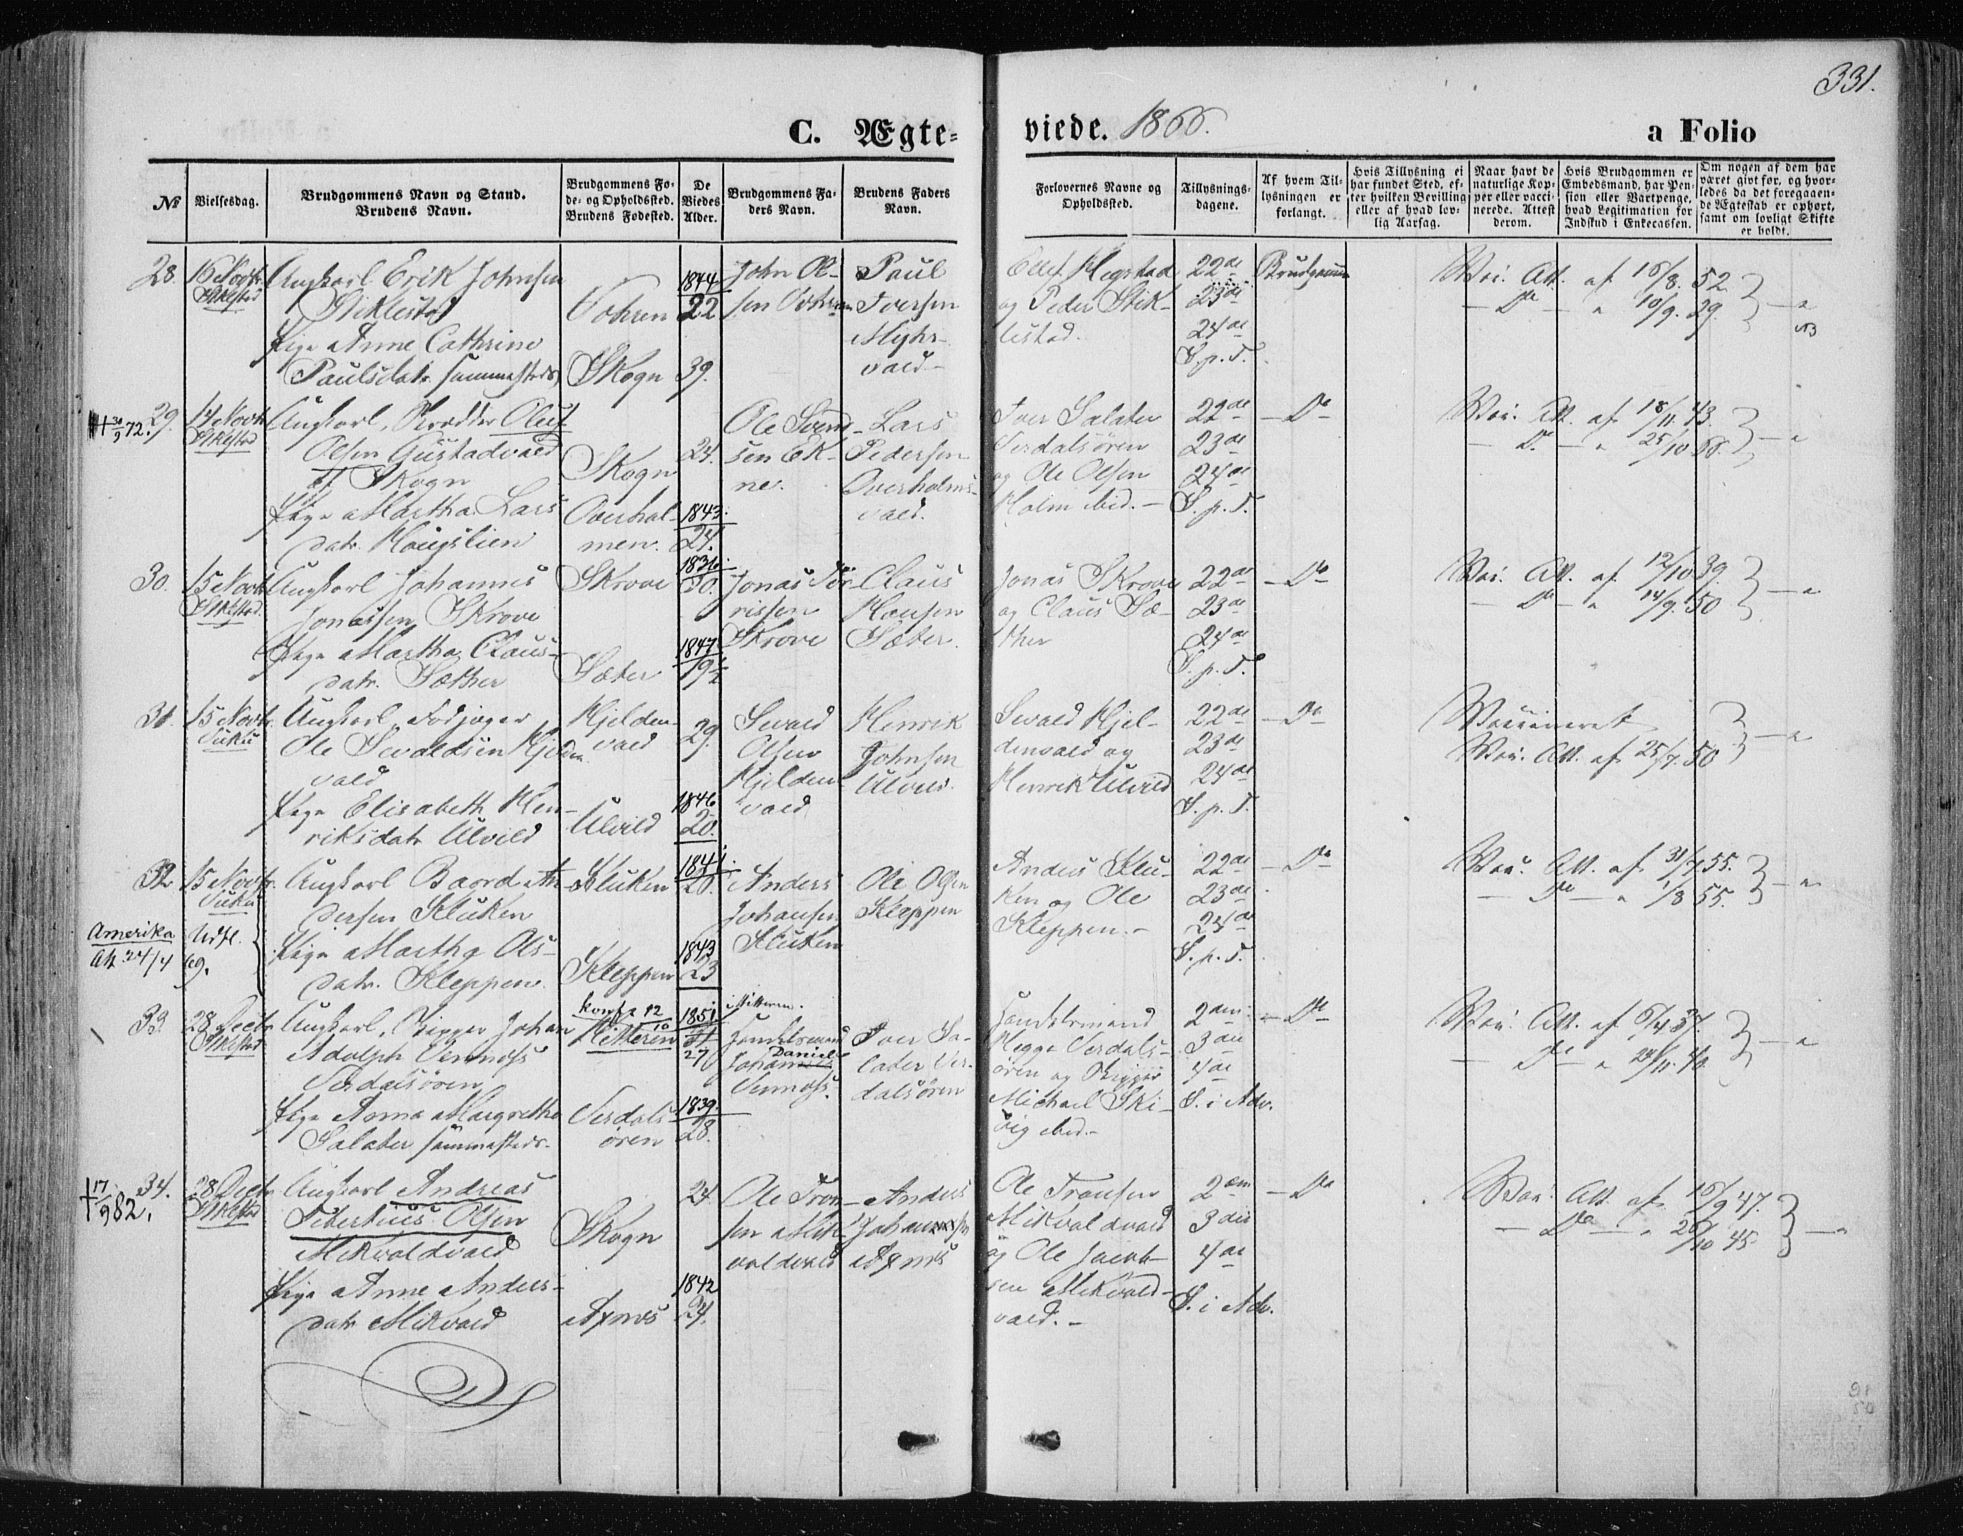 331.
C. Ægte=
viede. 1866.
a Folio
No
Vielsesdag.
Brudgommens Navn og Stand.
Brudens Navn.
Brudgommens Fø-
de- og Opholdssted.
Brudens Fødested.
De
Viedes
Alder.
Brudgommens Fa-
ders Navn.
Brudens Faders
Navn.
Forlovernes Navne og
Opholdssted.
Tillysnings-
dagene.
Af hvem Til-
lysningen er
forlangt.
Hvis Tillysning ei
har fundet Sted, ef-
ter hvilken Bevilling
eller af hvad lov-
lig Aarsag.
Naar havt de
naturlige Kop-
per eller vacci-
nerede. Attest
derom.
Hvis Brudgommen er
Embedsmand, har Pen-
sion eller Vartpenge,
hvad Legitimation for
Indskud i Enkecassen.
Om nogen af dem har
været gift før, og hvor-
ledes da det foregaaen-
de Ægteskab er ophørt,
samt om lovligt Skifte
er holdt.
28.
16 Novbr
Stiklestad
Ungkarl Erik Johnsen
Stiklestad
Pige Anne Cathrine
Paulsdatr sammesteds
Vohren
Skogn
1844
22
39.
John Ol-
sen Vohren
Paul
Iversen
Myhr-
vald
Ellef Hegstad
og Peder Stik-
lestad.
22de
23de
24de
S. p. T.
Brudgommen
Vac. Att. af 16/8. 52
— Do — " 10/9. 29.
29.
30/9 72.
14 Novbr
Stiklestad
Ungkarl, Oluf
Olsen Gustadvald
af Skogn
Pige Martha Lars
datr. Haugslien
Skogn
Overhal-
men.
24.
1843.
24.
Ole Svend-
sen Ek-
ne.
Lars
Pedersen
Overholms-
vald.
Iver Salater
Verdalsøren
og Ole Olsen
Holm ibid. —
22de
23de
24de
S. p. T.
— Do
Vac. Att. af 18/11. 43
— Do — " 25/10 66.
30.
15 Novbr
Stiklestad.
Ungkarl Johannes
Jonassen Skrove
Pige Martha Claus-
datr. Sæther
Skrove
Sæter
1836
30.
1847
19 1/2
Jonas Tør-
rissen
Skrove
Claus
Hansen
Sæter.
Jonas Skrove
og Claus Sæ-
ther
22de
23de
24de
S. p. T.
— Do
Vac. Att. af 12/10 39.
— Do — " 14/9. 50
31.
15 Novbr
Vuku
Ungkarl, Fodjæger
Ole Sevaldsen Hjelden
vald
Pige Elisabeth Hen-
riksdatr Ulvild
Hjelden-
vald
Ulvild
29.
1846
20.
Sevald
Olsen
Hjelden
vald
Henrik
Johnsen
Ulvild.
Sevald Hjel-
denvald og
Henrik Ulvild
22de
23de
24de
S. p. T.
— Do
Vaccineret
Vac. Att. af 25/7. 50
32.
15 Novbr.
Vuku
Ungkarl Baard An-
dersen Kluken
Pige Martha Ols-
datr. Kleppen
Amerika
Att 24/4
Udfl.
69.
Kluken
Kleppen
1841.
1843
23
Anders
Johansen
Kluken
Ole Olsen
Kleppen
Anders Klu-
ken og Ole
Kleppen. —
22de
23de
24de
S. p. T.
— Do
Vac. Att. af 31/7. 55.
— Do — " 1/8 55.
33.
28 Decbr
Stiklestad
Ungkarl, Rigger Johan
Adolph Vennæss
Verdalsøren
Pige Anna Margretha
Salater sammesteds
Hitteren
Verdals-
øren
27
1839.
28.
i Hitteren.
Handelsmand
Daniel
Vennæss.
Iver Sa-
later Ver-
dalsøren
Handelsmand
Hegge Verdals-
øren og Rigger
Michael Ski-
vig ibid. —
2den
3die
4de
S. i Adv.
— Do
Vac. Att. af 6/4 37.
— Do — "
34.
17/9 82.
28 Decbr
Stiklestad
Ungkarl Andreas
Tibertius Olsen
Mikvoldvald
Pige Anne Anders-
datr Mikvald
Skogn
Axnes
24.
1842
24.
Ole Tron-
sen Mik-
voldvald
Anders
Johannessen
Axnes
Ole Tronsen
Mikvoldvald
og Ole Jacob-
sen Mikvold-
vald. —
2den
3die
4de
S. i Adv.
— Do
Vac. Att. af 16/9 47.
— Do — " 26/10 45.